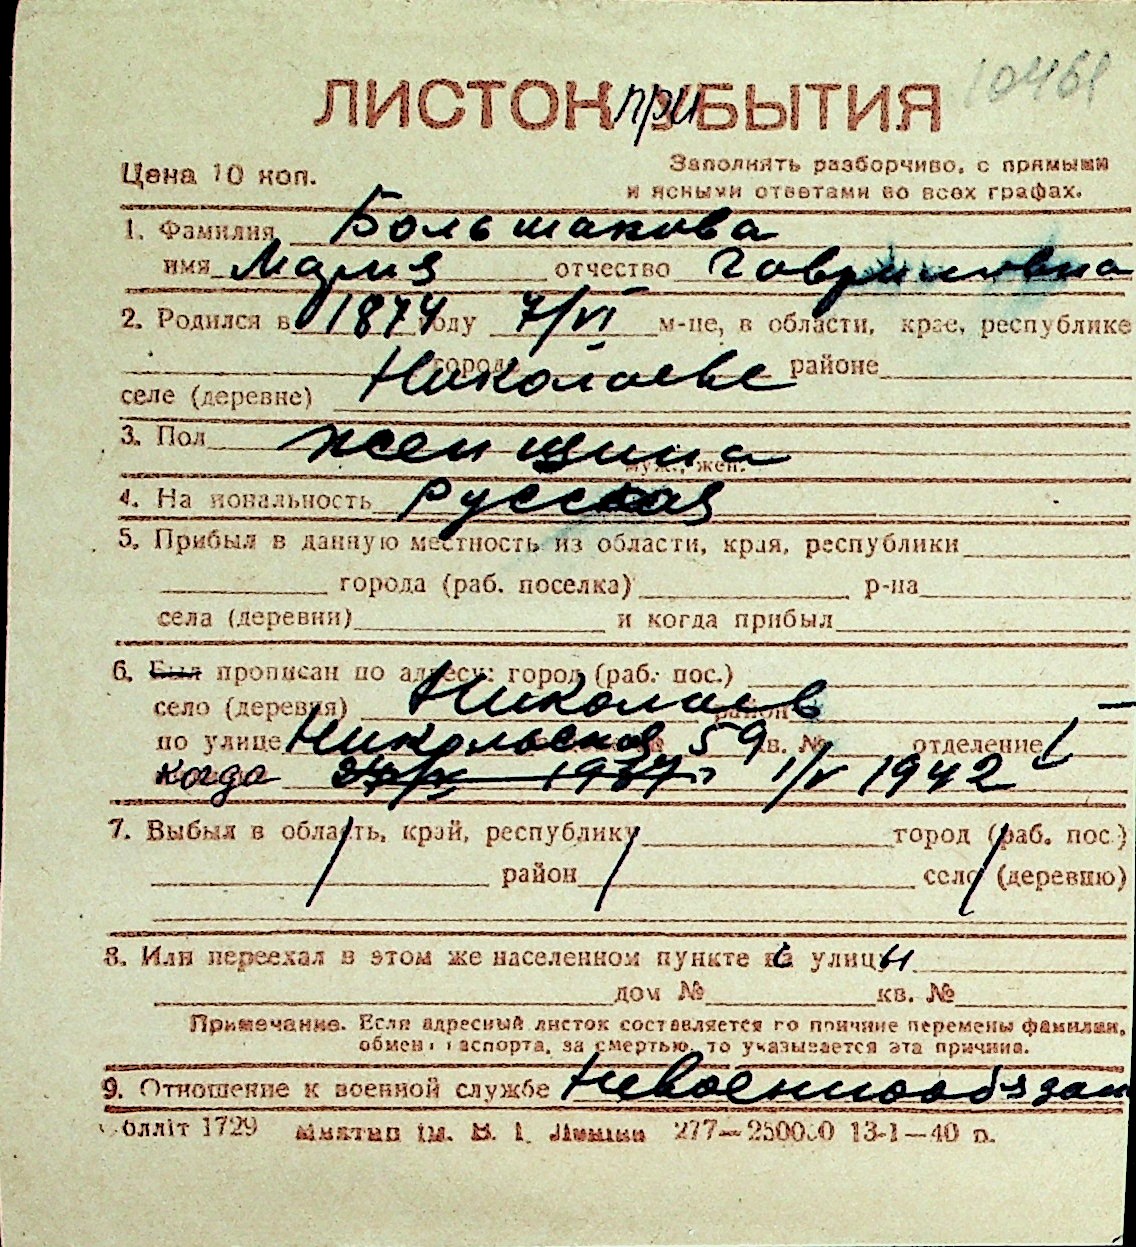 10461
ЛИСТОК при БЫТИЯ
Цена 10 коп.
Заполнять разборчиво, с прямыми
и ясными ответами во всех графах.
1. Фамилия Большакова
имя Мария отчество Гавриловна
2. Родился в 1874 году 7/VI м-це, в области, крае, республике
городе районе
селе (деревне) Николаеве
3. Пол женщина
муж., жен.
4. Национальность Русская
5. Прибыл в данную местность из области, края, республики
города (раб. поселка) р-на
села (деревни) и когда прибыл
6. Был прописан по адресу: город (раб. пос.)
село (деревня) Николаев район —
по улице Никольская № 59 кв. № отделение
когда 1937 г. 1/V 1942
7. Выбыл в область, край, республику город (раб. пос.)
район село (деревню)
8. Или переехал в этом же населенном пункте с улицы
дом № кв. №
Примечание. Если адресный листок составляется по причине перемены фамилии,
обмен паспорта, за смертью, то указывается эта причина.
9. Отношение к военной службе Невоеннообязан
Облліт 1729 ім. В. І. Леніна 277—250000 13-1—40 р.